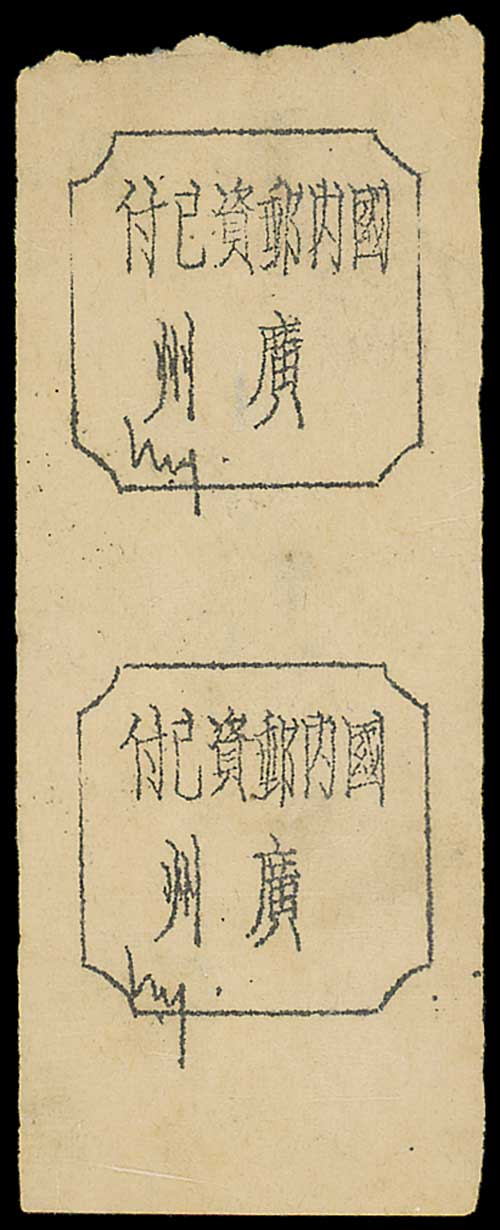 國內郵資已付
廣州
國內郵資已付
廣州